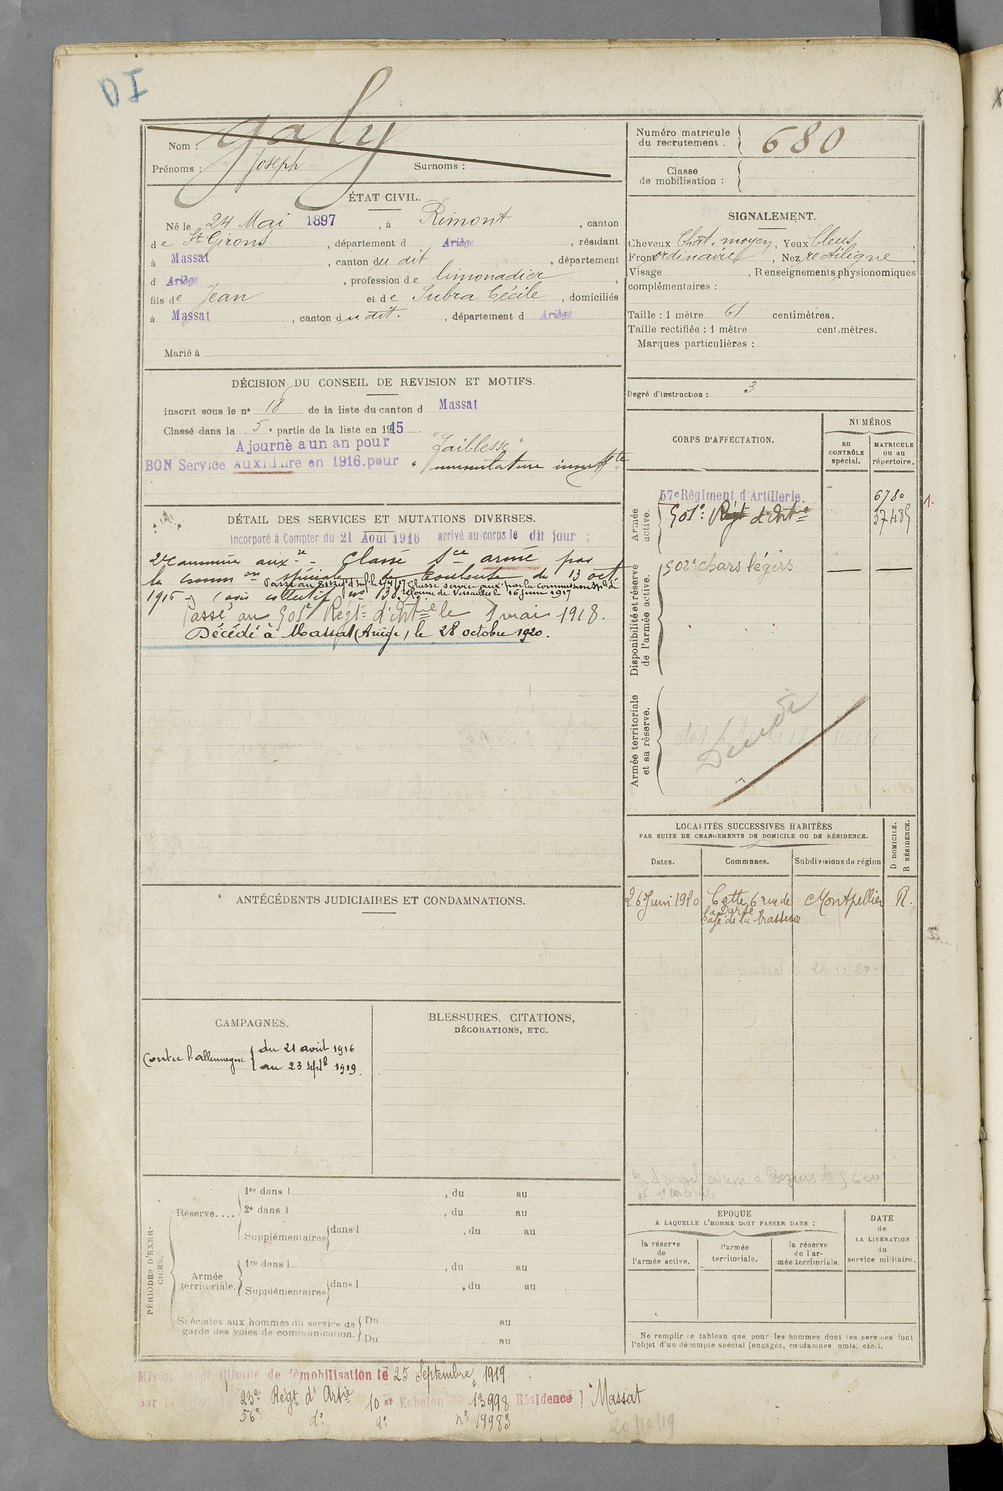 10
Nom : Galy
Prénoms : Joseph Surnoms :
ÉTAT CIVIL.
Né le 24 Mai 1897, à Rimont, canton
de St Girons, département d Ariège, résidant
à Massat, canton du dit, département
d Ariège, profession de limonadier
fils de Jean et de Subra Cécile, domiciliés
à Massat, canton du dit. , département d Ariège
Marié à
DÉCISION DU CONSEIL DE REVISION ET MOTIFS.
Inscrit sous le n° 18 de la liste du canton d Massat
Classé dans la 5e partie de la liste en 1915.
Ajourné a un an pour "faiblesse"
BON Service Auxiliaire en 1916.pour "
DÉTAIL DES SERVICES ET MUTATIONS DIVERSES.
Incorporé à Compter du 21 Août 1916 arrivé au corps le dit jour :
2e canonnier aux.re Classé Sce armé par
la Comm on spéciale de Toulouse du 13 oct
1916
Passé au 901e Régt d'Artie le 1 mai 1918.
Décédé à Massat (Ariège) le 28 octobre 1920.
ANTÉCÉDENTS JUDICIAIRES ET CONDAMNATIONS.
CAMPAGNES.
Contre l'allemagne { du 21 août 1916
au 23 septb 1919.
BLESSURES, CITATIONS,
DÉCORATIONS, ETC.
PÉRIODES D'EXERCICES.
Réserve.... 1re dans l , du au
2e dans l , du au
Supplémentaires dans l , du au
Armée territoriale. 1re dans l , du au
Supplémentaires dans l , du au
Spéciales aux hommes du service de garde des voies de communication. Du au
Du au
Numéro matricule
du recrutement. 680
Classe
de mobilisation :
SIGNALEMENT.
Cheveux Chat. moyen, Yeux bleus,
Front ordinaire, Nez rectiligne,
Visage , Renseignements physionomiques
complémentaires :
Taille : 1 mètre 61 centimètres.
Taille rectifiée : 1 mètre centimètres.
Marques particulières :
Degré d'instruction : 3
CORPS D'AFFECTATION.
NUMÉROS
au
CONTRÔLE
spécial.
MATRICULE
ou au
répertoire.
Armée
active.
57e Régiment d'Artillerie. 6780
901e Régt d'Artie
Disponibilité et réserve
de l'armée active.
502e chars légers
Armée territoriale
et sa réserve.
Décédé
LOCALITÉS SUCCESSIVES HABITÉES
PAR SUITE DE CHANGEMENTS DE DOMICILE OU DE RÉSIDENCE.
Dates. Communes. Subdivisions de région
D DOMICILE.
R RÉSIDENCE.
26 Juin 1920 Cette, 6 rue de Montpellier R.
Café de la brasserie
EPOQUE
A LAQUELLE L'HOMME DOIT PASSER DANS :
la réserve
de
l'armée active.
l'armée
territoriale.
la réserve
de l'armée territoriale.
DATE
de
LA LIBÉRATION
du
service militaire.
Ne remplir ce tableau que pour les hommes dont les services font
l'objet d'un décompte spécial (engagés, condamnés, omis, etc.).
Mis en congé illimité de démobilisation le 25 Septembre 1919
23e Régt d'Artie 10 er Echelon 13998 Résidence Massat
56e do do n° 19983
20/10/19